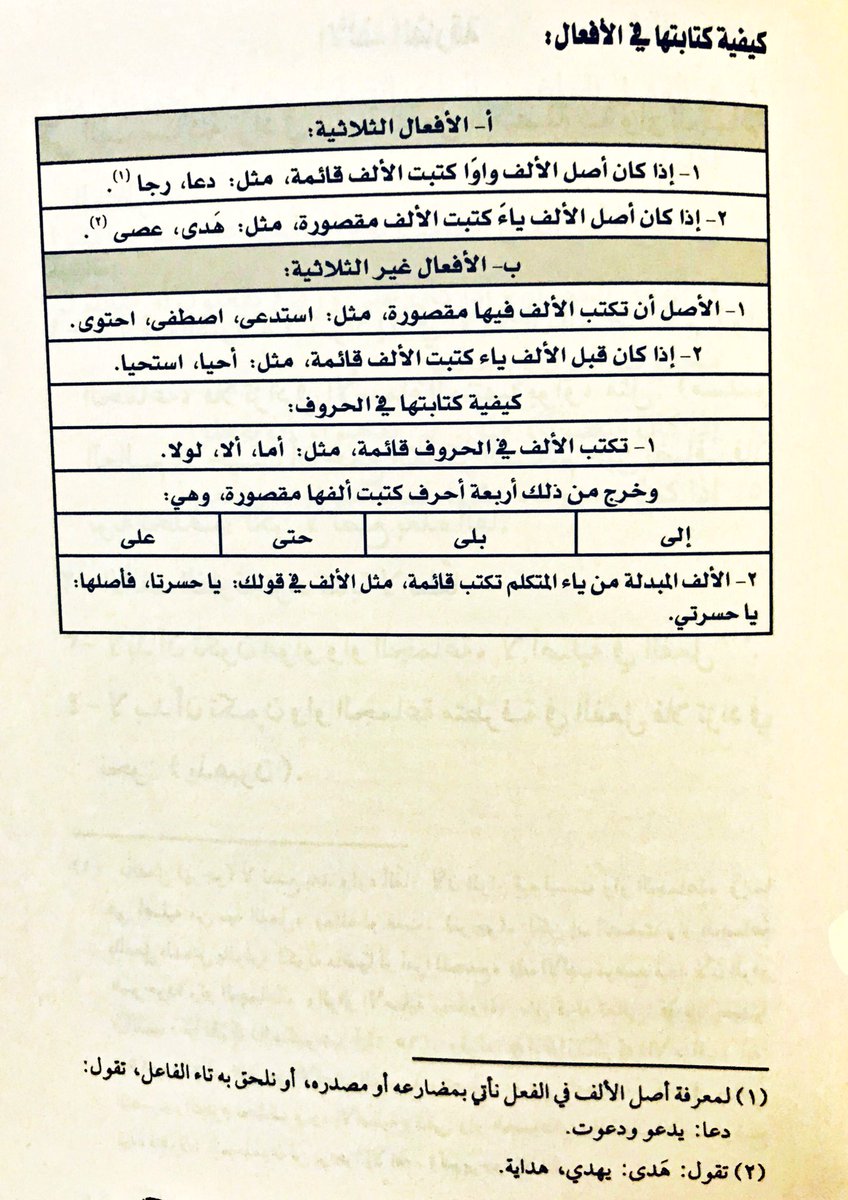 كيفية كتابتها في الأفعال:
أ- الأفعال الثلاثية:
١- إذا كان أصل الألف واوًا كتبت الألف قائمة، مثل: دعا، رجا (١).
٢- إذا كان أصل الألف ياءً كتبت الألف مقصورة، مثل: هَدى، عصى (٢).
ب- الأفعال غير الثلاثية:
١- الأصل أن تكتب الألف فيها مقصورة، مثل: استدعى، اصطفى، احتوى.
٢- إذا كان قبل الألف ياء كتبت الألف قائمة، مثل: أحيا، استحيا.
كيفية كتابتها في الحروف:
١- تكتب الألف في الحروف قائمة، مثل: أما، ألا، لولا.
وخرج من ذلك أربعة أحرف كتبت ألفها مقصورة، وهي:
إلى بلى حتى على
٢- الألف المبدلة من ياء المتكلم تكتب قائمة، مثل الألف في قولك: يا حسرتا، فأصلها:
يا حسرتي.
(١) لمعرفة أصل الألف في الفعل نأتي بمضارعه أو مصدره، أو نلحق به تاء الفاعل، تقول:
دعا: يدعو ودعوت.
(٢) تقول: هَدى: يهدي، هداية.